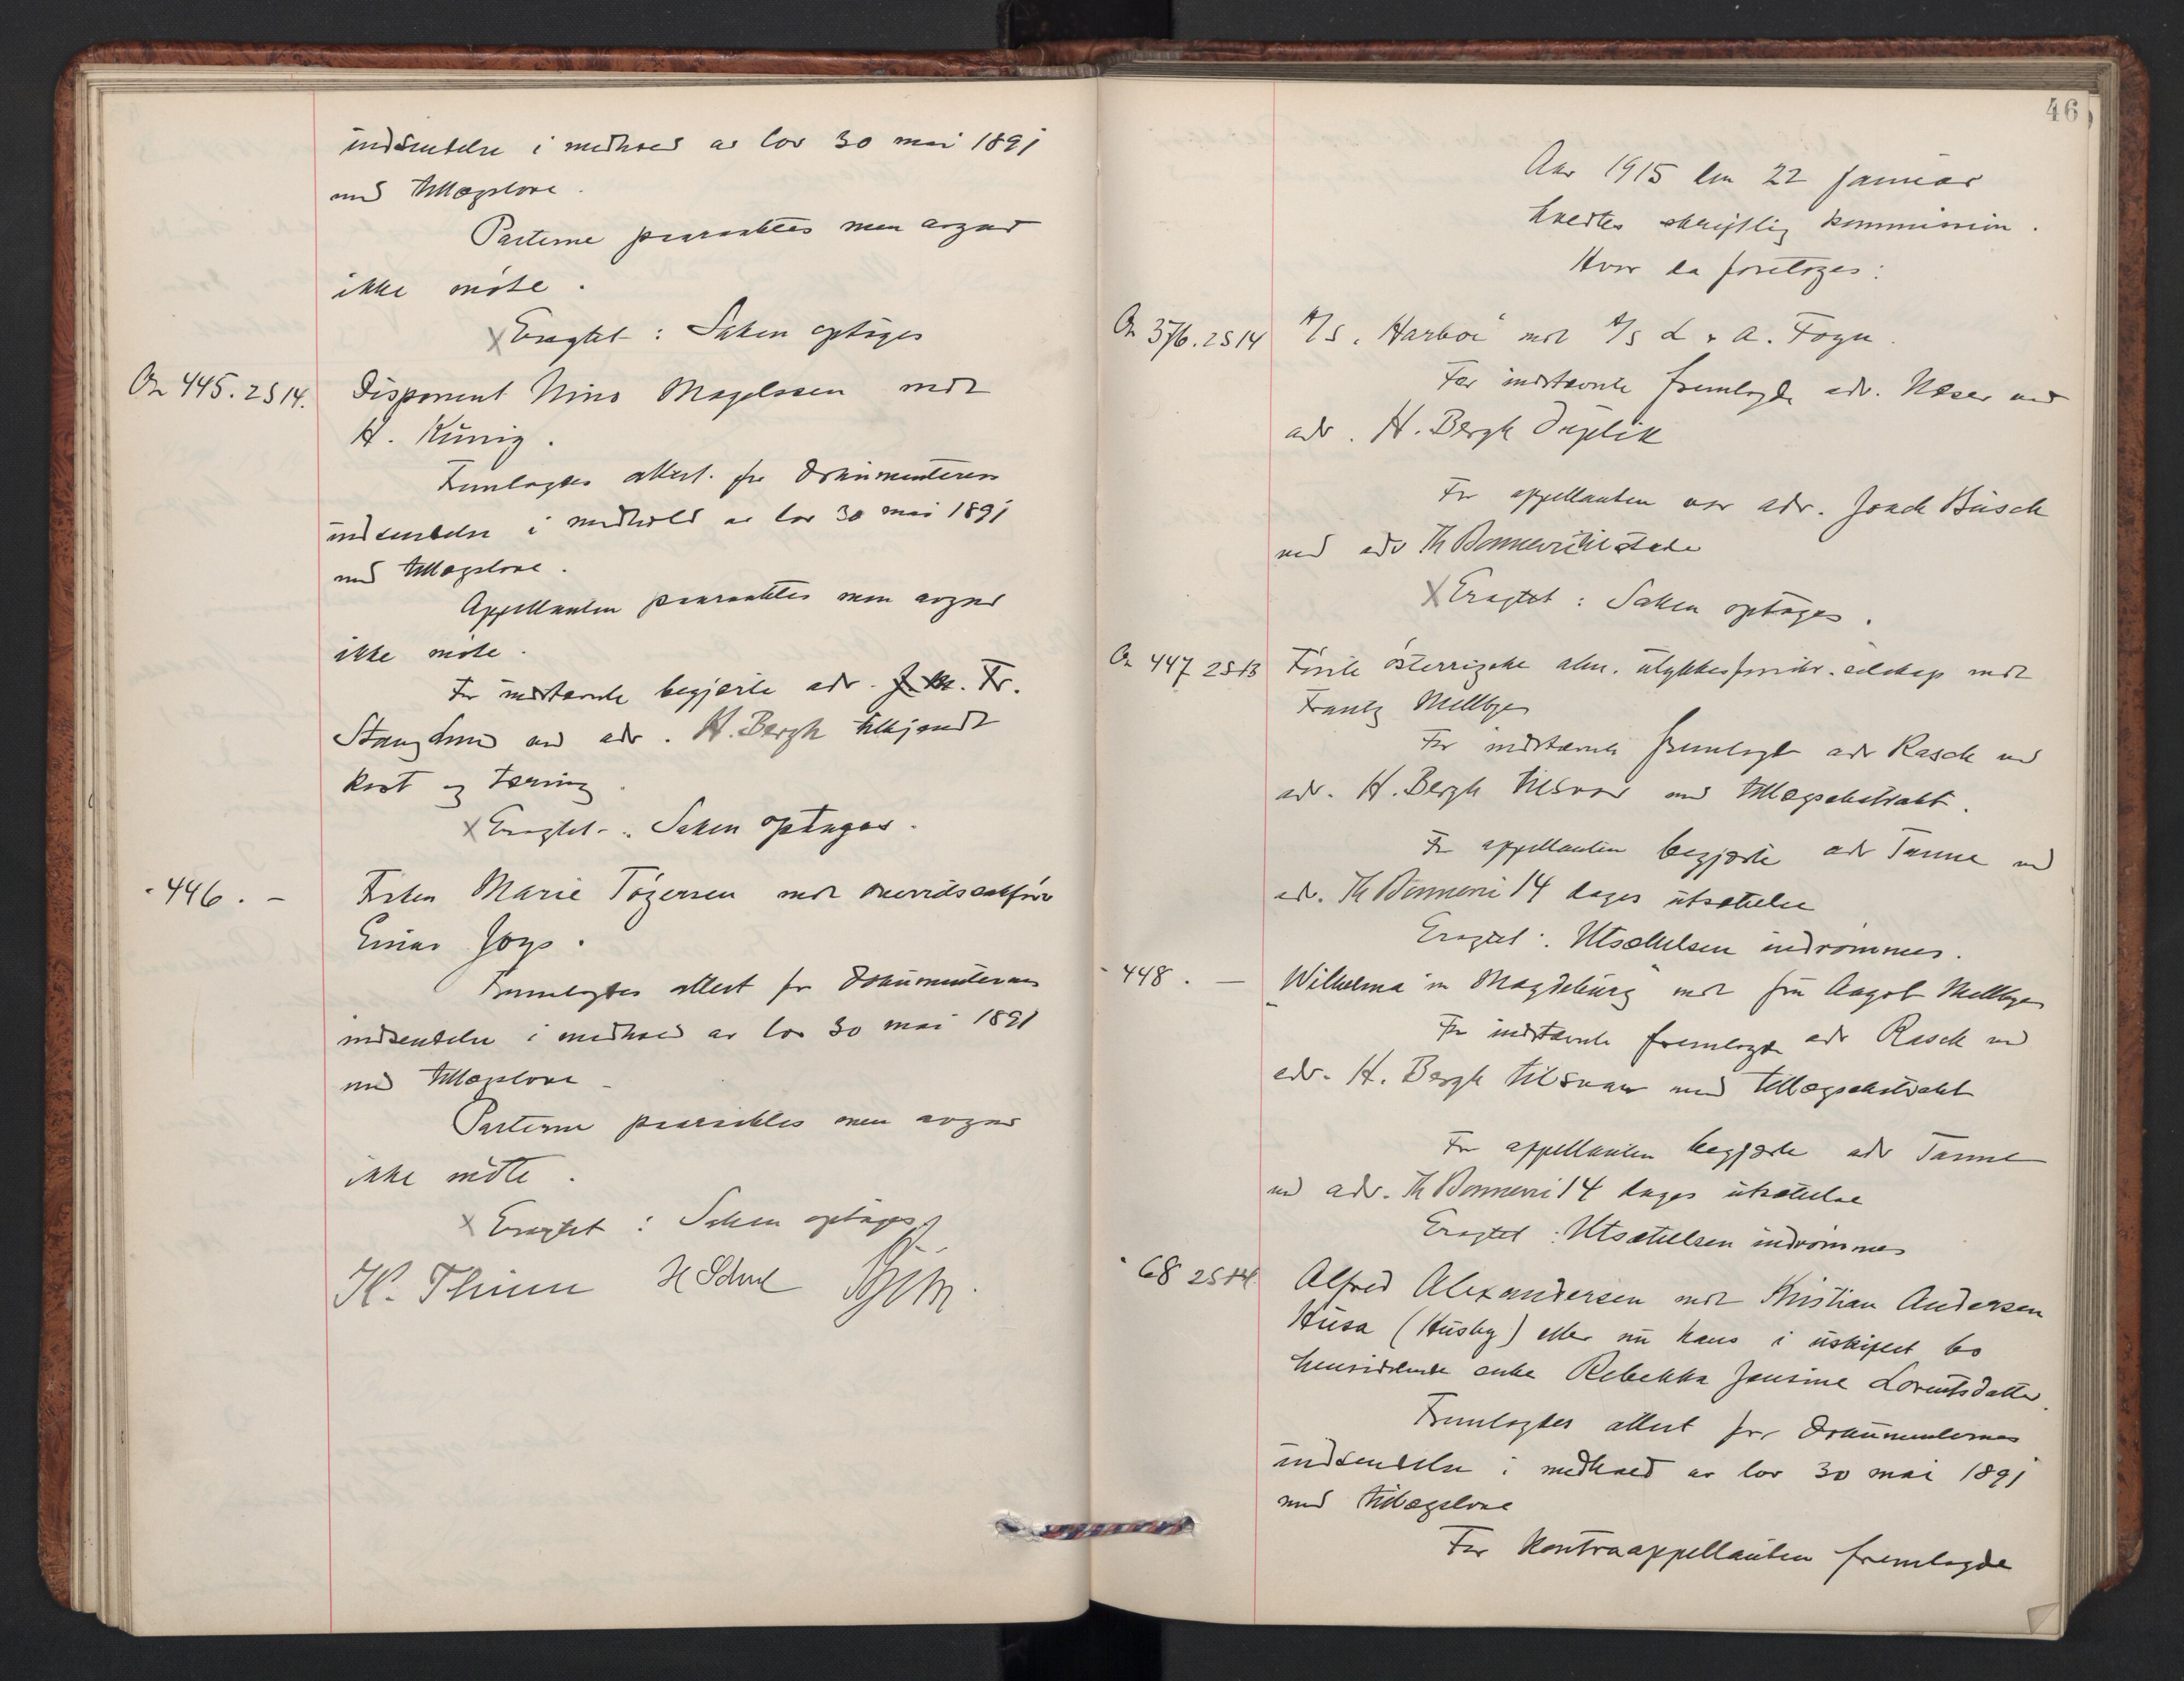 indsendelse i medhold av lov 30 mai 1891
med tillægslove.
Parterne paaraabtes men avgav
ikke møte.
x Eragtet: Saken optages
On 445. 2S14.
Disponent Nins Magelssen mot
H. König.
Fremlagdes attest for dokumenternes
indsendelse i medhold av lov 30 mai 1891
med tillægslove.
Appellanten paaraabtes men avgav
ikke møte.
For indstevnte begjærte adv. Fr.
Stang Lund ved adv. H. Bergh tilkjendt
kost og tæring.
x Eragtet: Saken optages.
- 446. -
Frøken Marie Tögersen mot overretssakfører
Einar Joys.
Fremlagdes attest for dokumenternes
indsendelse i medhold av lov 30 mai 1891
med tillægslove
Parterne paaraabtes men avgav
ikke møte.
x Eragtet: Saken optages
K. Thinn
46
Aar 1915 den 22 januar
holdtes skriftlig kommission.
Hvor da foretoges:
On 376. 2S14
A/S "Harboi" mot A/S L. & A. Fogn.
For indstevnte fremlagde adv. Næser ved
adv. H. Bergh Duplik
For appellanten var adv. Joach Busch
ved adv Th Bonnevie tilstede
x Eragtet: Saken optages.
On 447 2S13
Förste österrigske alm. ulykkesforsikr.-selskap mot
Frantz Mellbye
For indstevnte fremlagde adv Rasch ved
adv. H. Bergh tilsvar med tillægsekstrakt.
For appellanten begjærte adv Tanne ved
adv. Th Bonnevie 14 dages utsættelse
Eragtet: Utsættelsen indrømmes.
- 448. -
"Wilhelma in Magdeburg" mot fru Aagot Mellbye
For indstevnte fremlagde adv Rasch ved
adv. H. Bergh tilsvar med tillægsekstrakt
For appellanten begjærte adv Tanne
ved adv. Th Bonnevie 14 dages utsættelse
Eragtet: Utsættelsen indrømmes
" 68 2S14
Alfred Alexandersen mot Kristian Andersen
Husa (Husby) eller nu hans i uskiftet bo
hensiddende enke Rebekka Jensine Lorentsdatter.
Fremlagdes attest for dokumenternes
indsendelse i medhold av lov 30 mai 1891
med tillægslove
For kontraappellanten fremlagde